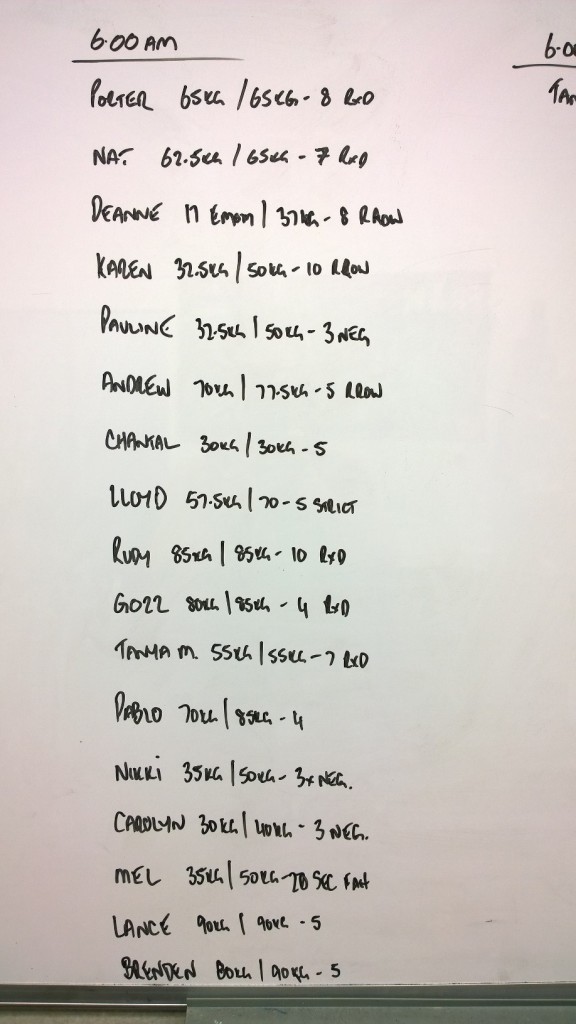 6:00 AM
PORTER 65KG / 65KG - 8 RxD
NAT 62.5KG / 65KG - 7 RxD
DEANNE 17 EMOM / 37KG - 8 RROW
KAREN 32.5KG / 50KG - 10 RROW
PAULINE 32.5KG / 50KG - 3 NEG
ANDREW 70KG / 77.5KG - 5 RROW
CHANTAL 30KG / 30KG - 5
LLOYD 57.5KG / 70 - 5 STRICT
RUDY 85KG / 85KG - 10 RxD
GOZZ 80KG / 85KG - 4 RxD
TANYA M. 55KG / 55KG - 7 RxD
PABLO 70KG / 85KG - 4
NIKKI 35KG / 50KG - 3x NEG.
CAROLYN 30KG / 40KG - 3 NEG.
MEL 35KG / 50KG - 20 SEC
LANCE 90KG / 90KG - 5
BRENDEN 80KG / 90KG - 5
6:0
TAN